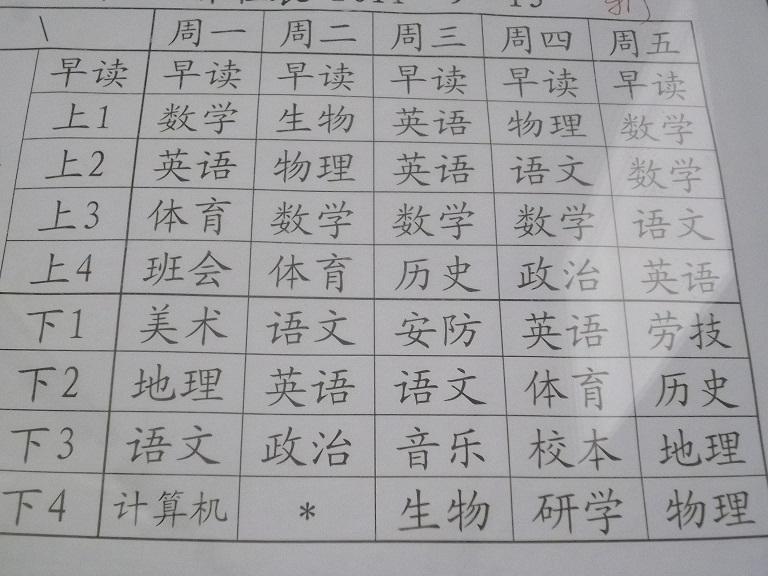 周一 周二 周三 周四 周五
早读 早读 早读 早读 早读 早读
上1 数学 生物 英语 物理 数学
上2 英语 物理 英语 语文 数学
上3 体育 数学 数学 数学 语文
上4 班会 体育 历史 政治 英语
下1 美术 语文 安防 英语 劳技
下2 地理 英语 语文 体育 历史
下3 语文 政治 音乐 校本 地理
下4 计算机 * 生物 研学 物理